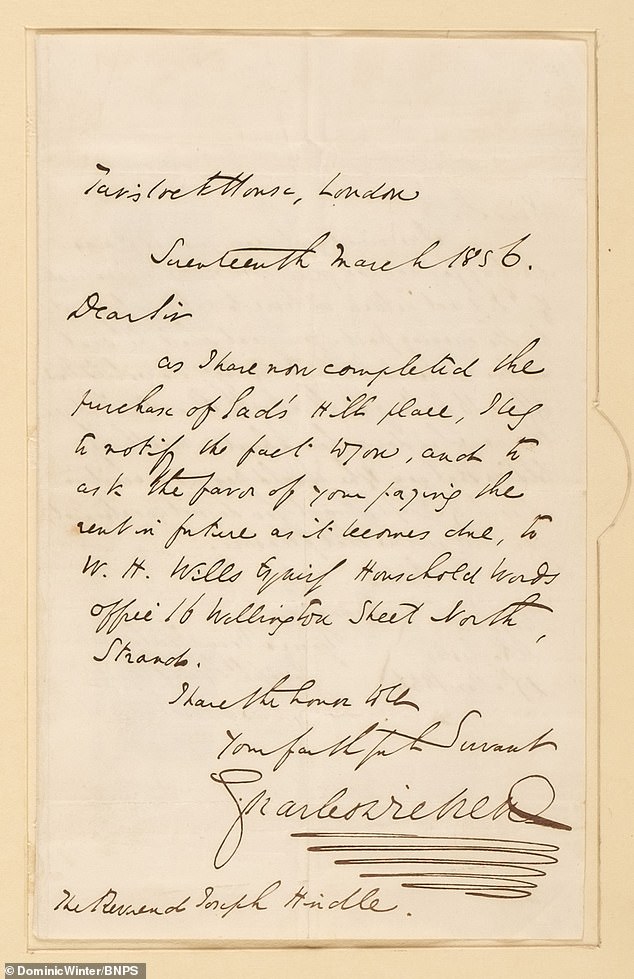 Tavistock House, London
Seventeenth March 1856.
Dear Sir
as I have now completed the
purchase of Gad's Hill place, I beg
to notify the fact to you, and to
ask the favor of your paying the
rent in future as it becomes due, to
W. H. Wills Esquire Household Words
office 16 Wellington Street North,
Strand.
I have the honor to be
Your faithful Servant
Charles Dickens
The Reverend Joseph Hindle.
© DominicWinter/BNPS